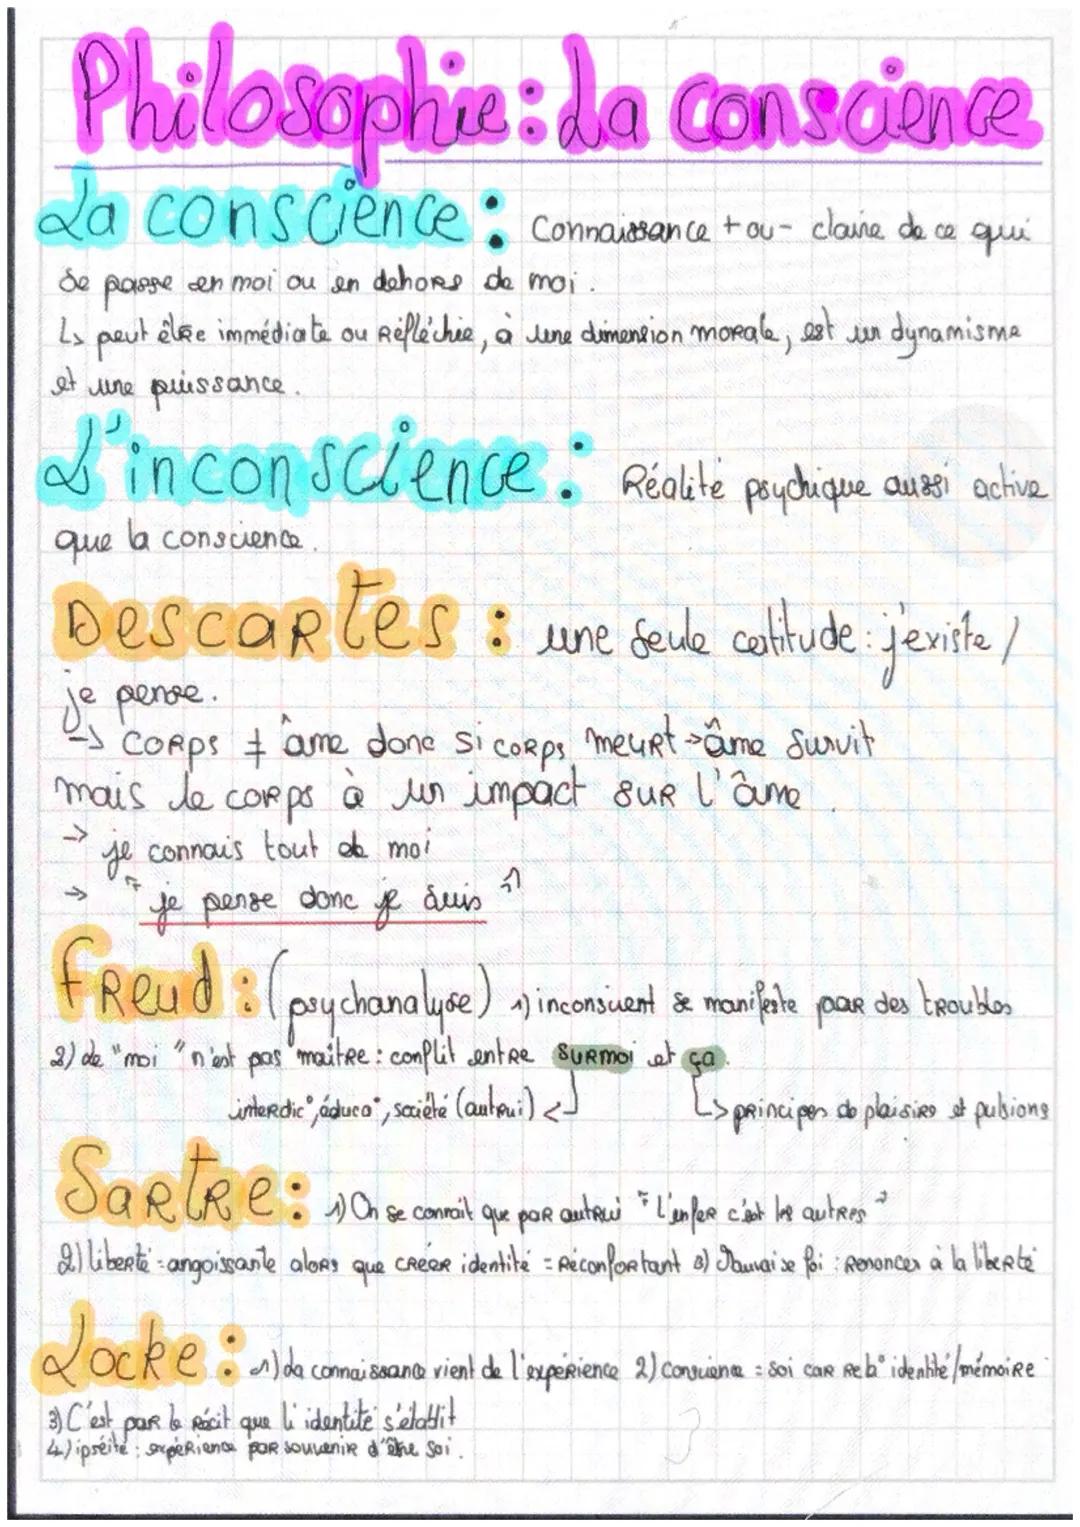 Philosophie : La conscience
La conscience : Connaissance + ou - claire de ce qui
se passe en moi ou en dehors de moi.
↳ peut être immédiate ou Réfléchie, à une dimension morale, est un dynamisme
et une puissance.
L'inconscience : Réalité psychique aussi active
que la conscience.
Descartes : une seule certitude : j'existe /
je pense.
↳ corps ≠ âme donc si corps meurt → âme survit
mais le corps à un impact sur l'âme.
→ je connais tout de moi
→ "je pense donc je suis"
Freud : (psychanalyse) 1) inconscient se manifeste par des troubles
2) Le "moi" n'est pas maître : conflit entre surmoi et ça.
interdic°, éduca°, société (autrui) <┘ ↳ principes de plaisirs et pulsions
Sartre : 1) On se connait que par autrui "L'enfer c'est les autres"
2) liberté = angoissante alors que créer identité = réconfortant 3) Mauvaise foi : Renoncer à la liberté
Locke : 1) La connaissance vient de l'expérience 2) Conscience = soi car rela° identité/mémoire
3) C'est par le récit que l'identité s'établit
4) ipséité : expérience par souvenir d'être soi.